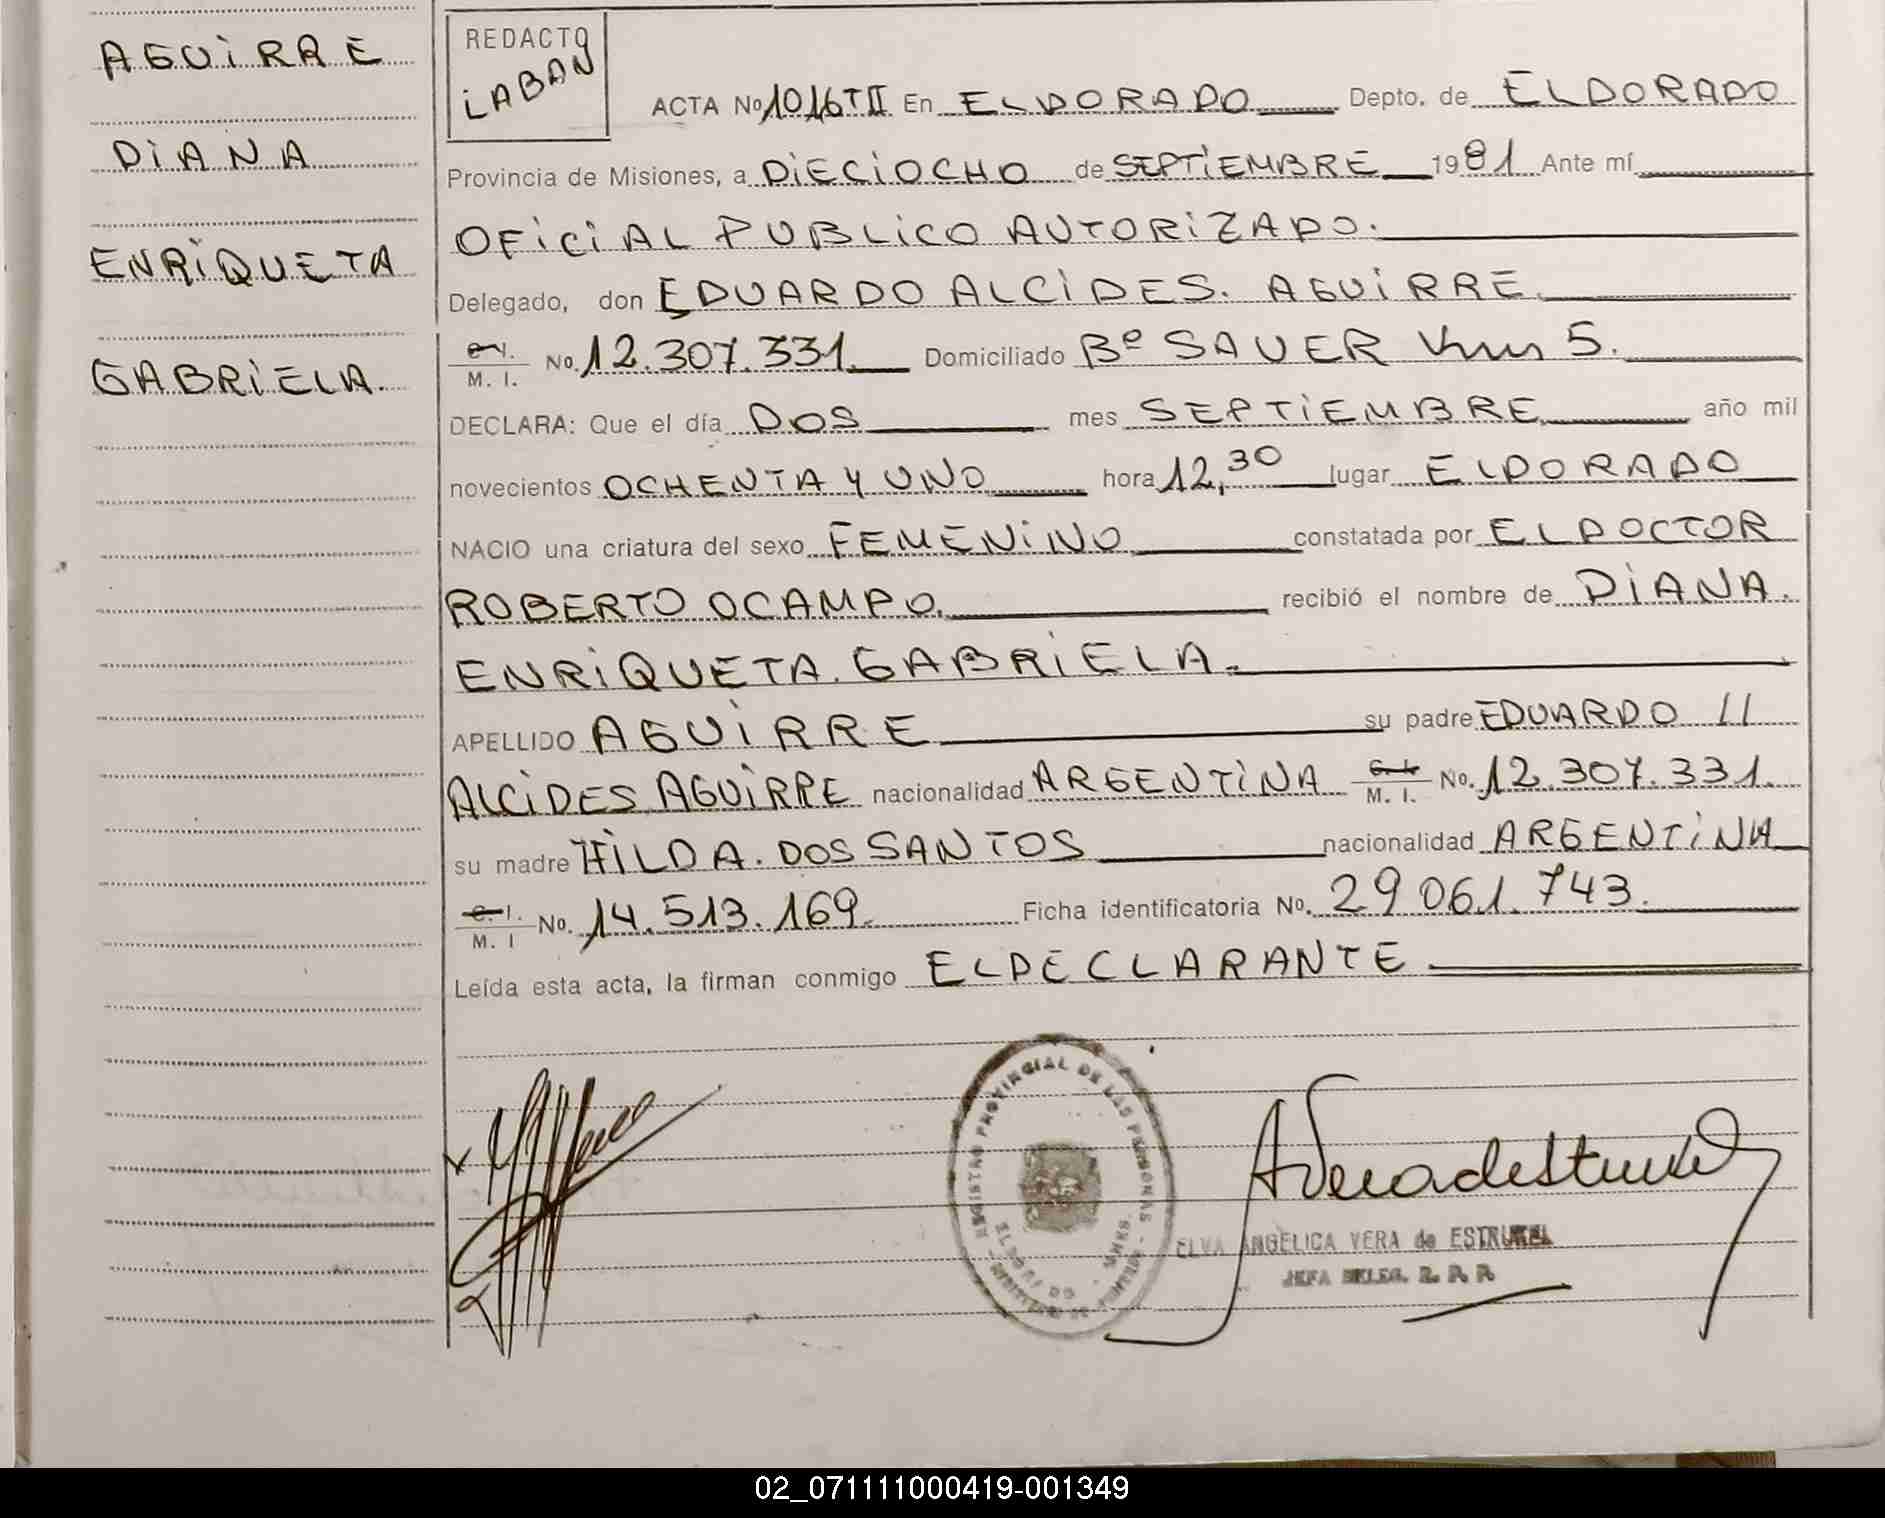 AGUiRRE
DiANA
ENRiQUETA
GABRiELA.
REDACTO
LABAN
ACTA No 1016 T II En ELDORADO Depto. de ELDORADO
Provincia de Misiones, a DiECiOCHO de SEPTiEMBRE 1981 Ante mí
OFiCiAL PUBLiCO AUTORiZADO.
Delegado, don EDUARDO ALCiDES. AGUiRRE.
C. I.
M. I. No. 12.307.331. Domiciliado Bº SAUER Km 5.
DECLARA: Que el día DOS mes SEPTiEMBRE año mil
novecientos OCHENTA Y UNO hora 12,30 lugar ELDORADO
NACIO una criatura del sexo FEMENiNO constatada por EL DOCTOR
ROBERTO OCAMPO. recibió el nombre de DiANA.
ENRiQUETA. GABRiELA.
APELLIDO AGUiRRE su padre EDUARDO //
ALCiDES AGUiRRE nacionalidad ARGENTiNA C. I.
M. I. No. 12.307.331.
su madre HiLDA. DOS SANTOS nacionalidad ARGENTiNA
C. I.
M. I No. 14.513.169. Ficha identificatoria No. 29 061.743.
Leída esta acta, la firman conmigo EL DECLARANTE
REGISTRO PROVINCIAL DE LAS PERSONAS
ELDORADO
ELVA ANGELICA VERA de ESTRUKEL
JEFA DELEG. R. P. P.
02_071111000419-001349